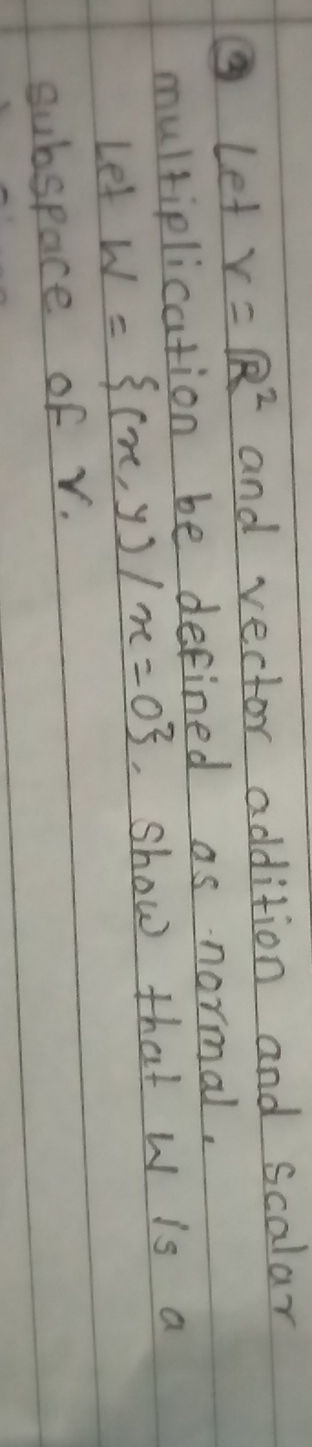 ③ Let V = ℝ² and vector addition and scalar
multiplication be defined as normal.
Let W = {(x, y) / x = 0}. Show that W is a
subspace of V.